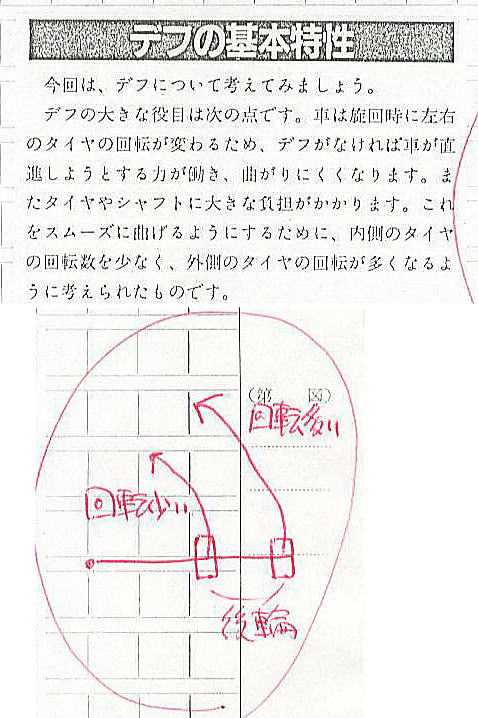 デフの基本特性
今回は、デフについて考えてみましょう。
デフの大きな役目は次の点です。車は旋回時に左右
のタイヤの回転が変わるため、デフがなければ車が直
進しようとする力が働き、曲がりにくくなります。ま
たタイヤやシャフトに大きな負担がかかります。これ
をスムーズに曲げるようにするために、内側のタイヤ
の回転数を少なく、外側のタイヤの回転が多くなるよ
うに考えられたものです。
（第　図）
回転多い
回転少い
後輪